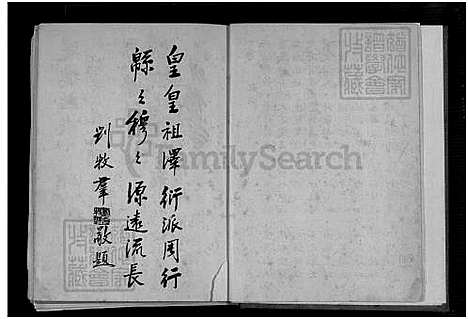 皇皇祖澤衍派周行
緜々穆々源遠流長
劉牧羣敬題
FamilySearch